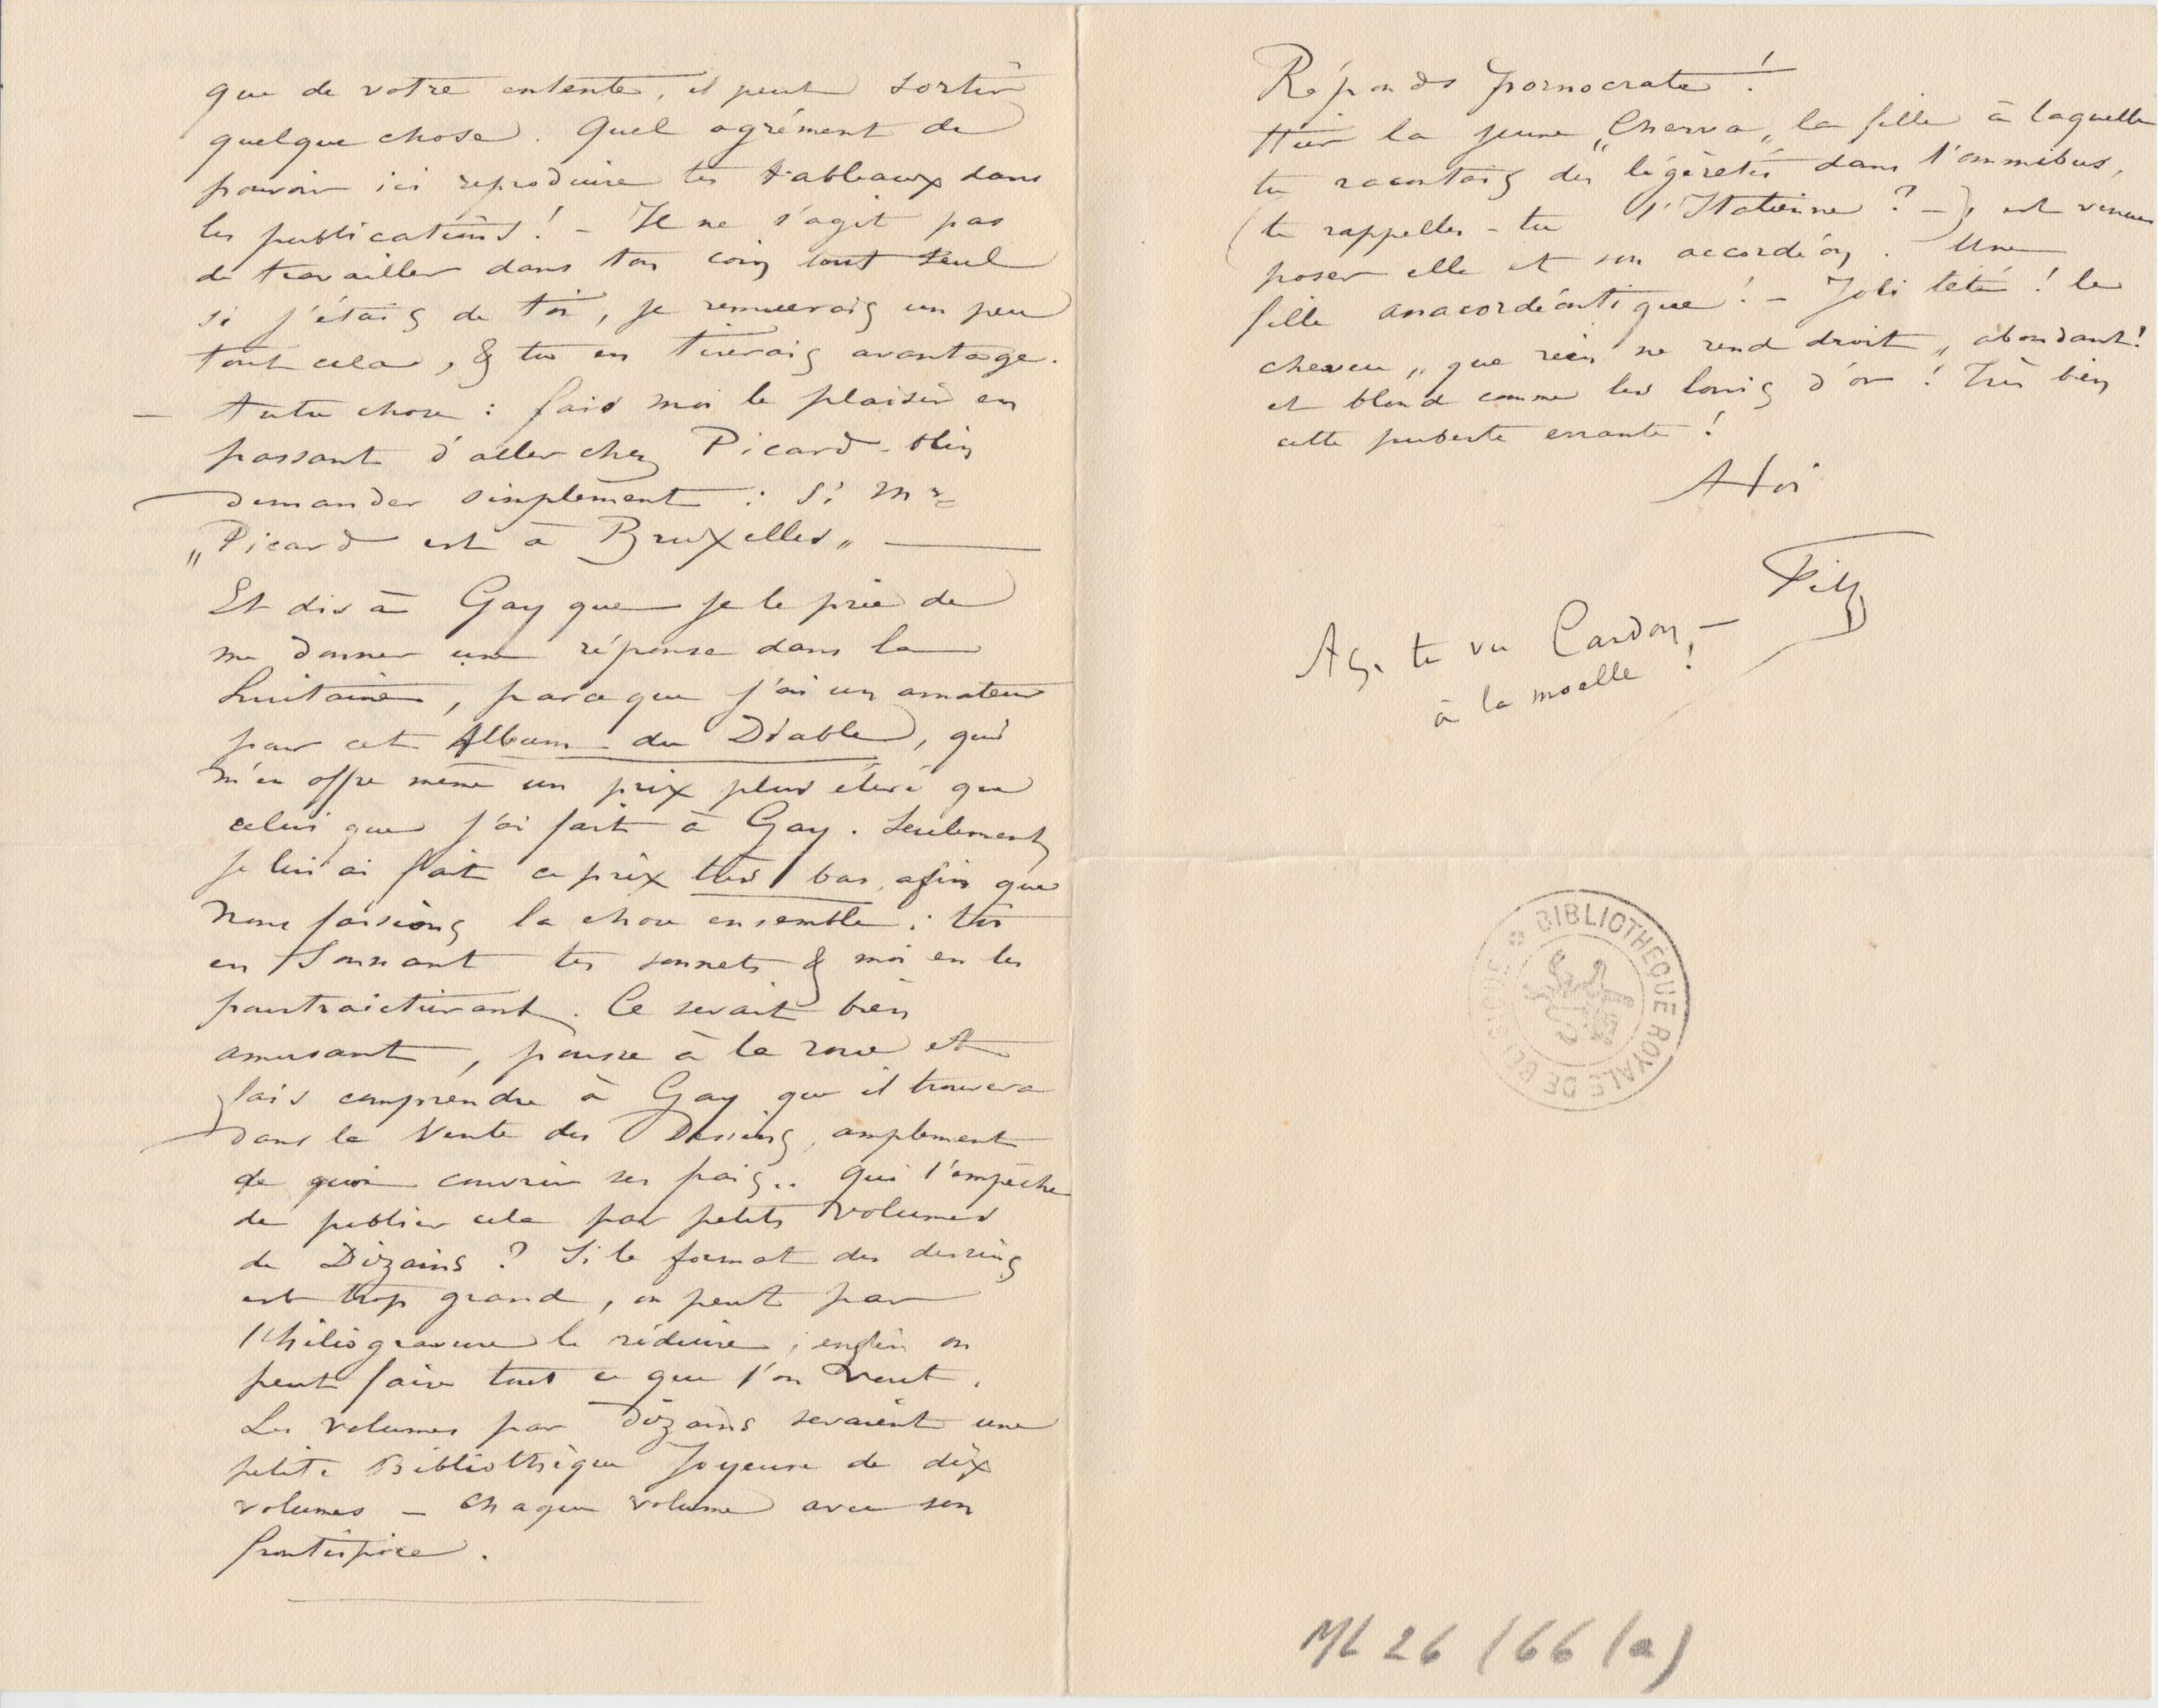 que de votre entente, il peut sortir
quelque chose. Quel agrément de
pouvoir ici reproduire tes tableaux dans
les publications! – Il ne s'agit pas
de travailler dans ton coin tout seul
si j'étais de toi, je remuerais un peu
tout cela, & tu en tirerais avantage.
– Autre chose : fais moi le plaisir en
passant d'aller chez Picard-Olin
demander simplement : Si Mr
„Picard est à Bruxelles„ —
Et dis à Gay que je le prie de
me donner une réponse dans la
huitaine, parceque j'ai un amateur
pour cet Album du Diable, qui
m'en offre même un prix plus élevé que
celui que j'ai fait à Gay. Seulement
je lui ai fait ce prix très bas, afin que
nous faisions la chose ensemble : toi
en sonnant tes sonnets & moi en les
pourtraicturant. Ce serait bien
amusant, pousse à la roue et
fais comprendre à Gay que il trouvera
dans la Vente des Dessins, amplement
de quoi couvrir ses frais.. Qui l'empêche
de publier cela par petits volumes
de Dizains ? Si le format des dessins
est trop grand, on peut par
l'héliogravure le réduire ; enfin on
peut faire tout ce que l'on veut.
Les volumes par Dizains seraient une
petite Bibliothèque Joyeuse de dix
volumes – Chaque volume avec son
frontispice.
Réponds pornocrate !
Hier la jeune „Cherva„ la fille à laquelle
tu racontais des légèretés dans l'ommibus,
(te rappelles-tu l'Italienne ? –), est venue
poser elle et son accordéon. Une
fille anacordéontique ! – Joli tété ! le
cheveu „que rien ne rend droit„ abondant !
et blond comme les louis d'or ! Très bien
cette puberté errante !
A toi
Fély
As-tu vu Cardon, –
à la moelle !
BIBLIOTHEQUE ROYALE DE BELGIQUE
ML 26 /66 (a)